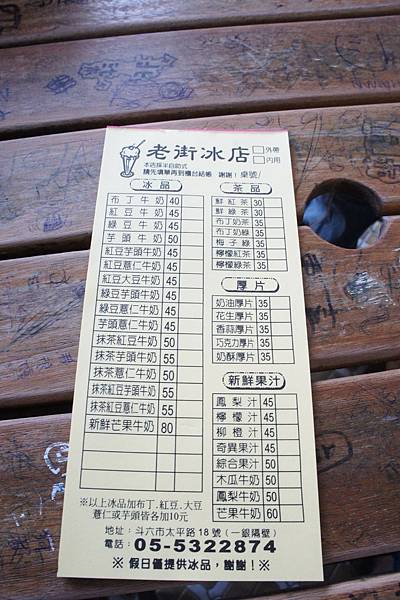 老街冰店 □外帶
□內用
本店採半自助式
請先填單再到櫃台結帳 謝謝! 桌號/
冰品
布丁牛奶 40
紅豆牛奶 45
綠豆牛奶 45
芋頭牛奶 50
紅豆芋頭牛奶 45
紅豆薏仁牛奶 45
紅豆大豆牛奶 45
綠豆芋頭牛奶 45
綠豆薏仁牛奶 45
芋頭薏仁牛奶 45
抹茶紅豆牛奶 50
抹茶芋頭牛奶 55
抹茶薏仁牛奶 50
抹茶紅豆芋頭牛奶 55
抹茶紅豆薏仁牛奶 55
新鮮芒果牛奶 80
※以上冰品加布丁.紅豆.大豆
薏仁或芋頭皆各加10元
茶品
鮮紅茶 30
鮮綠茶 30
布丁奶茶 35
布丁奶綠 35
梅子綠 35
檸檬紅茶 35
檸檬綠茶 35
厚片
奶油厚片 35
花生厚片 35
香蒜厚片 35
巧克力厚片 35
奶酥厚片 35
新鮮果汁
鳳梨汁 45
檸檬汁 45
柳橙汁 45
奇異果汁 45
綜合果汁 50
木瓜牛奶 50
鳳梨牛奶 50
芒果牛奶 60
地址:斗六市太平路18號(一銀隔壁)
電話:05-5322874
※ 假日僅提供冰品,謝謝!※